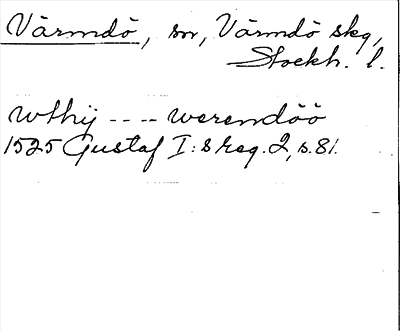 Värmdö, sn, Värmdö skg,
Stockh. l.
wthij ---- werendöö
1525 Gustaf I:s reg. 2, s. 81.